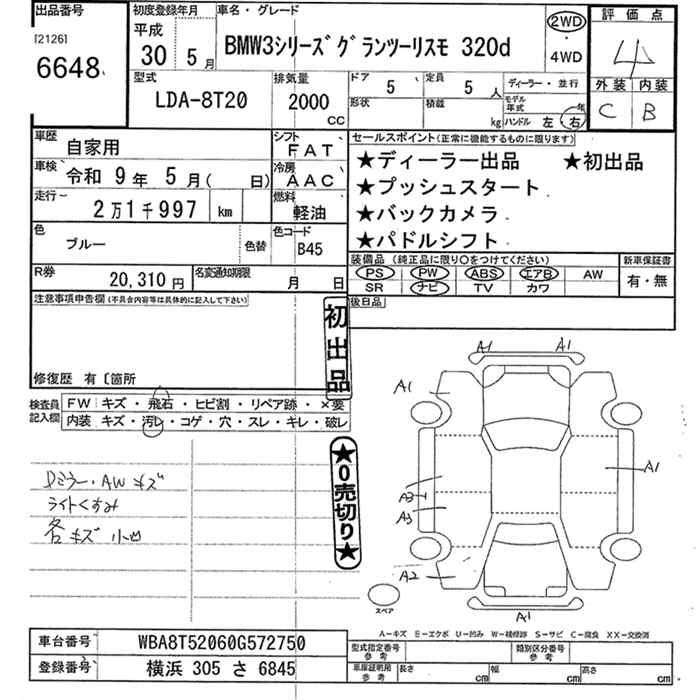 出品番号
[2126]
6648
初度登録年月
平成
30 5月
車名・グレード
BMW3シリーズグランツーリスモ 320d
2WD
・
4WD
評価点
4
外装 内装
C B
型式
LDA-8T20
排気量
2000
CC
ドア
5
定員
5人
形状
積載
kg
ディーラー・並行
モデル年式 年
ハンドル 左・右
車歴
自家用
シフト
FAT
車検
令和 9年 5月( 日)
冷房
AAC
走行
2万1千997 km
燃料
軽油
色
ブルー
色替
色コード
B45
R券
20,310円
名変通知期限
月 日
セールスポイント(正常に機能するものに限ります)
★ディーラー出品 ★初出品
★プッシュスタート
★バックカメラ
★パドルシフト
装備品 (純正品に限り○をつけてください)
PS PW ABS エアB AW
SR ナビ TV カワ
新車保証書
有・無
後日品
注意事項申告欄(不具合内容等は具体的に記入して下さい)
初出品
修復歴 有〔箇所
検査員記入欄
FW キズ・飛石・ヒビ割・リペア跡・×要
内装 キズ・汚レ・コゲ・穴・スレ・キレ・破レ
★0売切り★
Dミラー・AWキズ
ライトくすみ
各キズ小凹
A1 A1
A1
A1
A3
A3
A2
A1
スペア
A-キズ E-エクボ U-凹み W-補修跡 S-サビ C-腐食 XX-交換済
車台番号
WBA8T52060G572750
登録番号
横浜 305 さ 6845
型式指定番号
参考
類別区分番号
参考
車庫証明用
参考
長さ cm 幅 cm 高さ cm